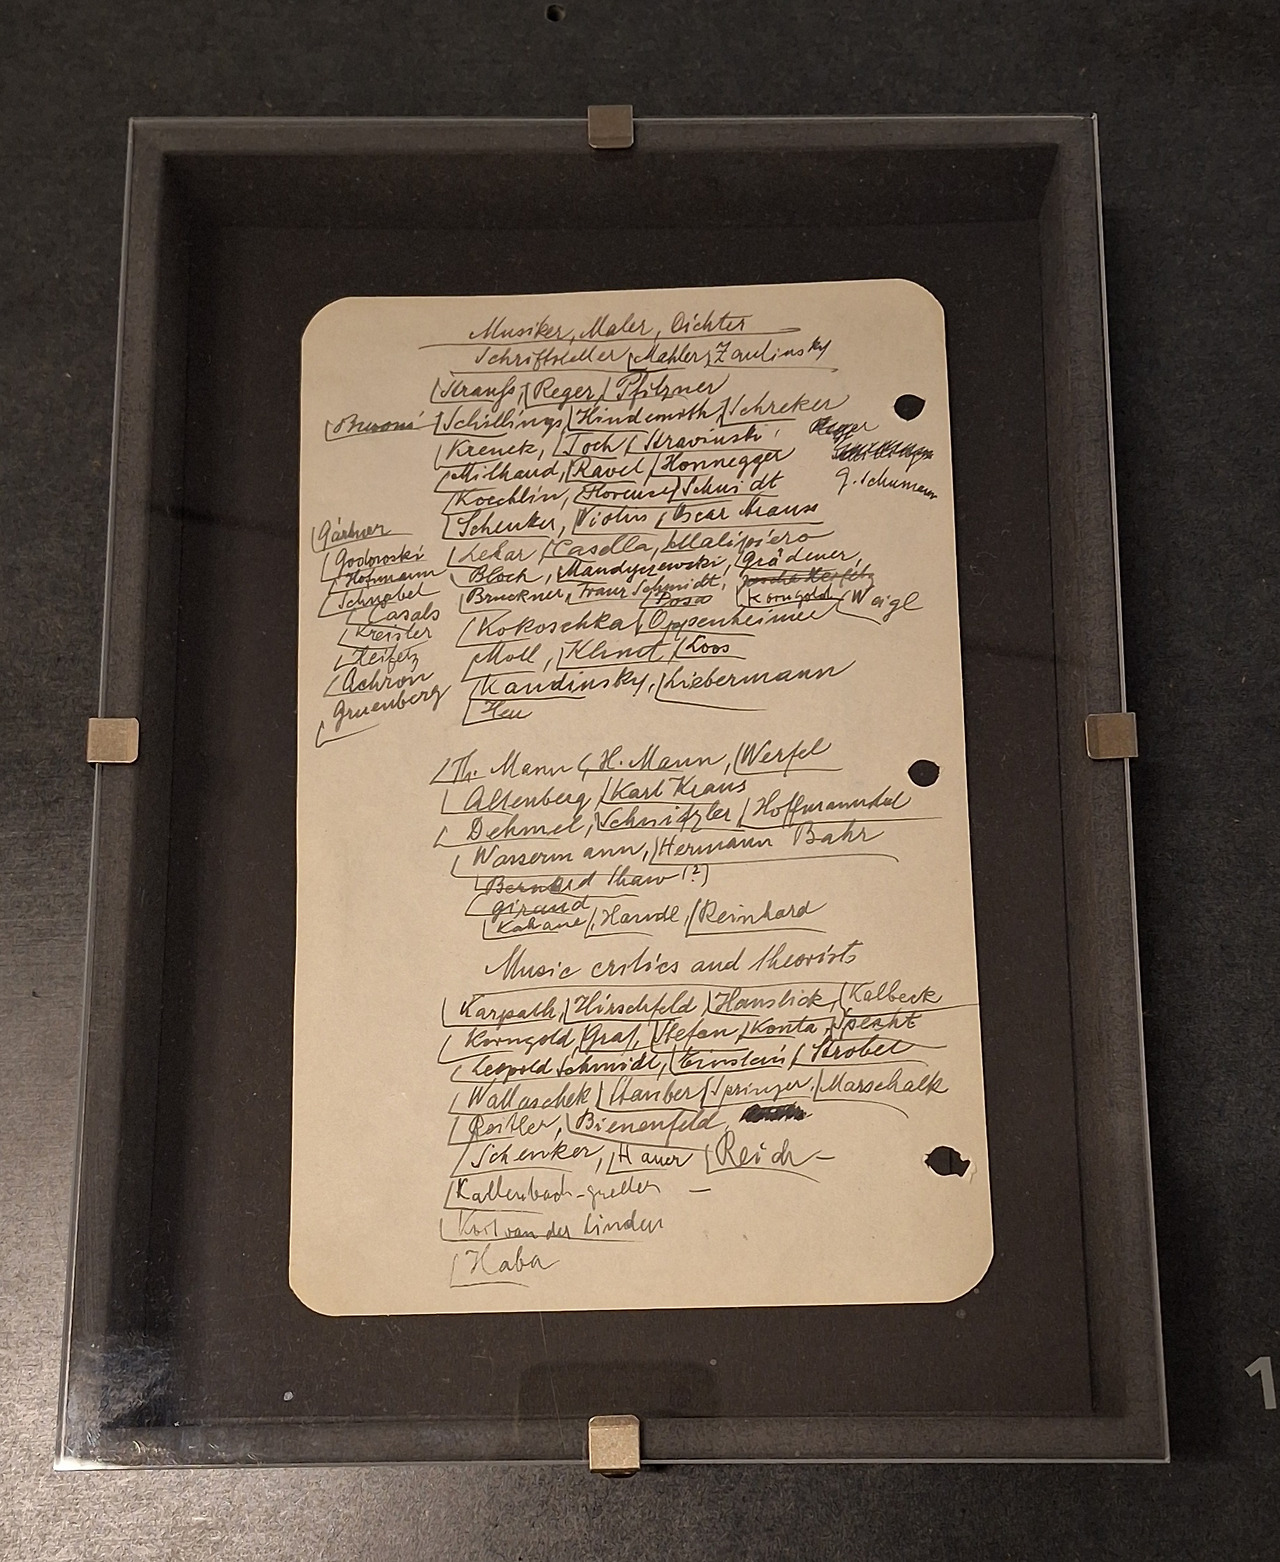 Musiker, Maler, Dichter
Schriftsteller Mahler, Zemlinsky
Strauss, Reger, Pfitzner
Busoni Schillings, Hindemith, Schreker
Krenek, Toch, Stravinski, Reger
Milhaud, Ravel, Honnegger
Koechlin, Florence Schmidt G. Schumann
Gärtner Schenker, Violin, Oscar Strauss
Godowski Lehar, Casella, Malipiero
Hofmann Bloch, Mandyczewski, Grädener,
Schnabel Bruckner, Franz Schmidt, Jascha Heifetz
Posa Korngold Weigl
Casals Kokoschka, Oppenheimer
Kreisler
Heifetz Moll, Klimt, Loos
Achron Kandinsky, Liebermann
Gruenberg Heu
Th. Mann, H. Mann, Werfel
Altenberg, Karl Kraus
Dehmel, Schnitzler, Hoffmannsthal
Wassermann, Hermann Bahr
Bernhard Shaw (?)
Giraud
Kahane, Handl, Reinhard
Music critics and theorists
Karpath, Hirschfeld, Hanslick, Kalbeck
Korngold, Graf, Stefan, Konta, Specht
Leopold Schmidt, Einstein, Strobel
Wallaschek, Stauber, Springer, Marschalk
Reitler, Bienenfeld,
Schenker, Hauer, Reich –
Kallenbach-Greller –
van der Linden
Haba
1